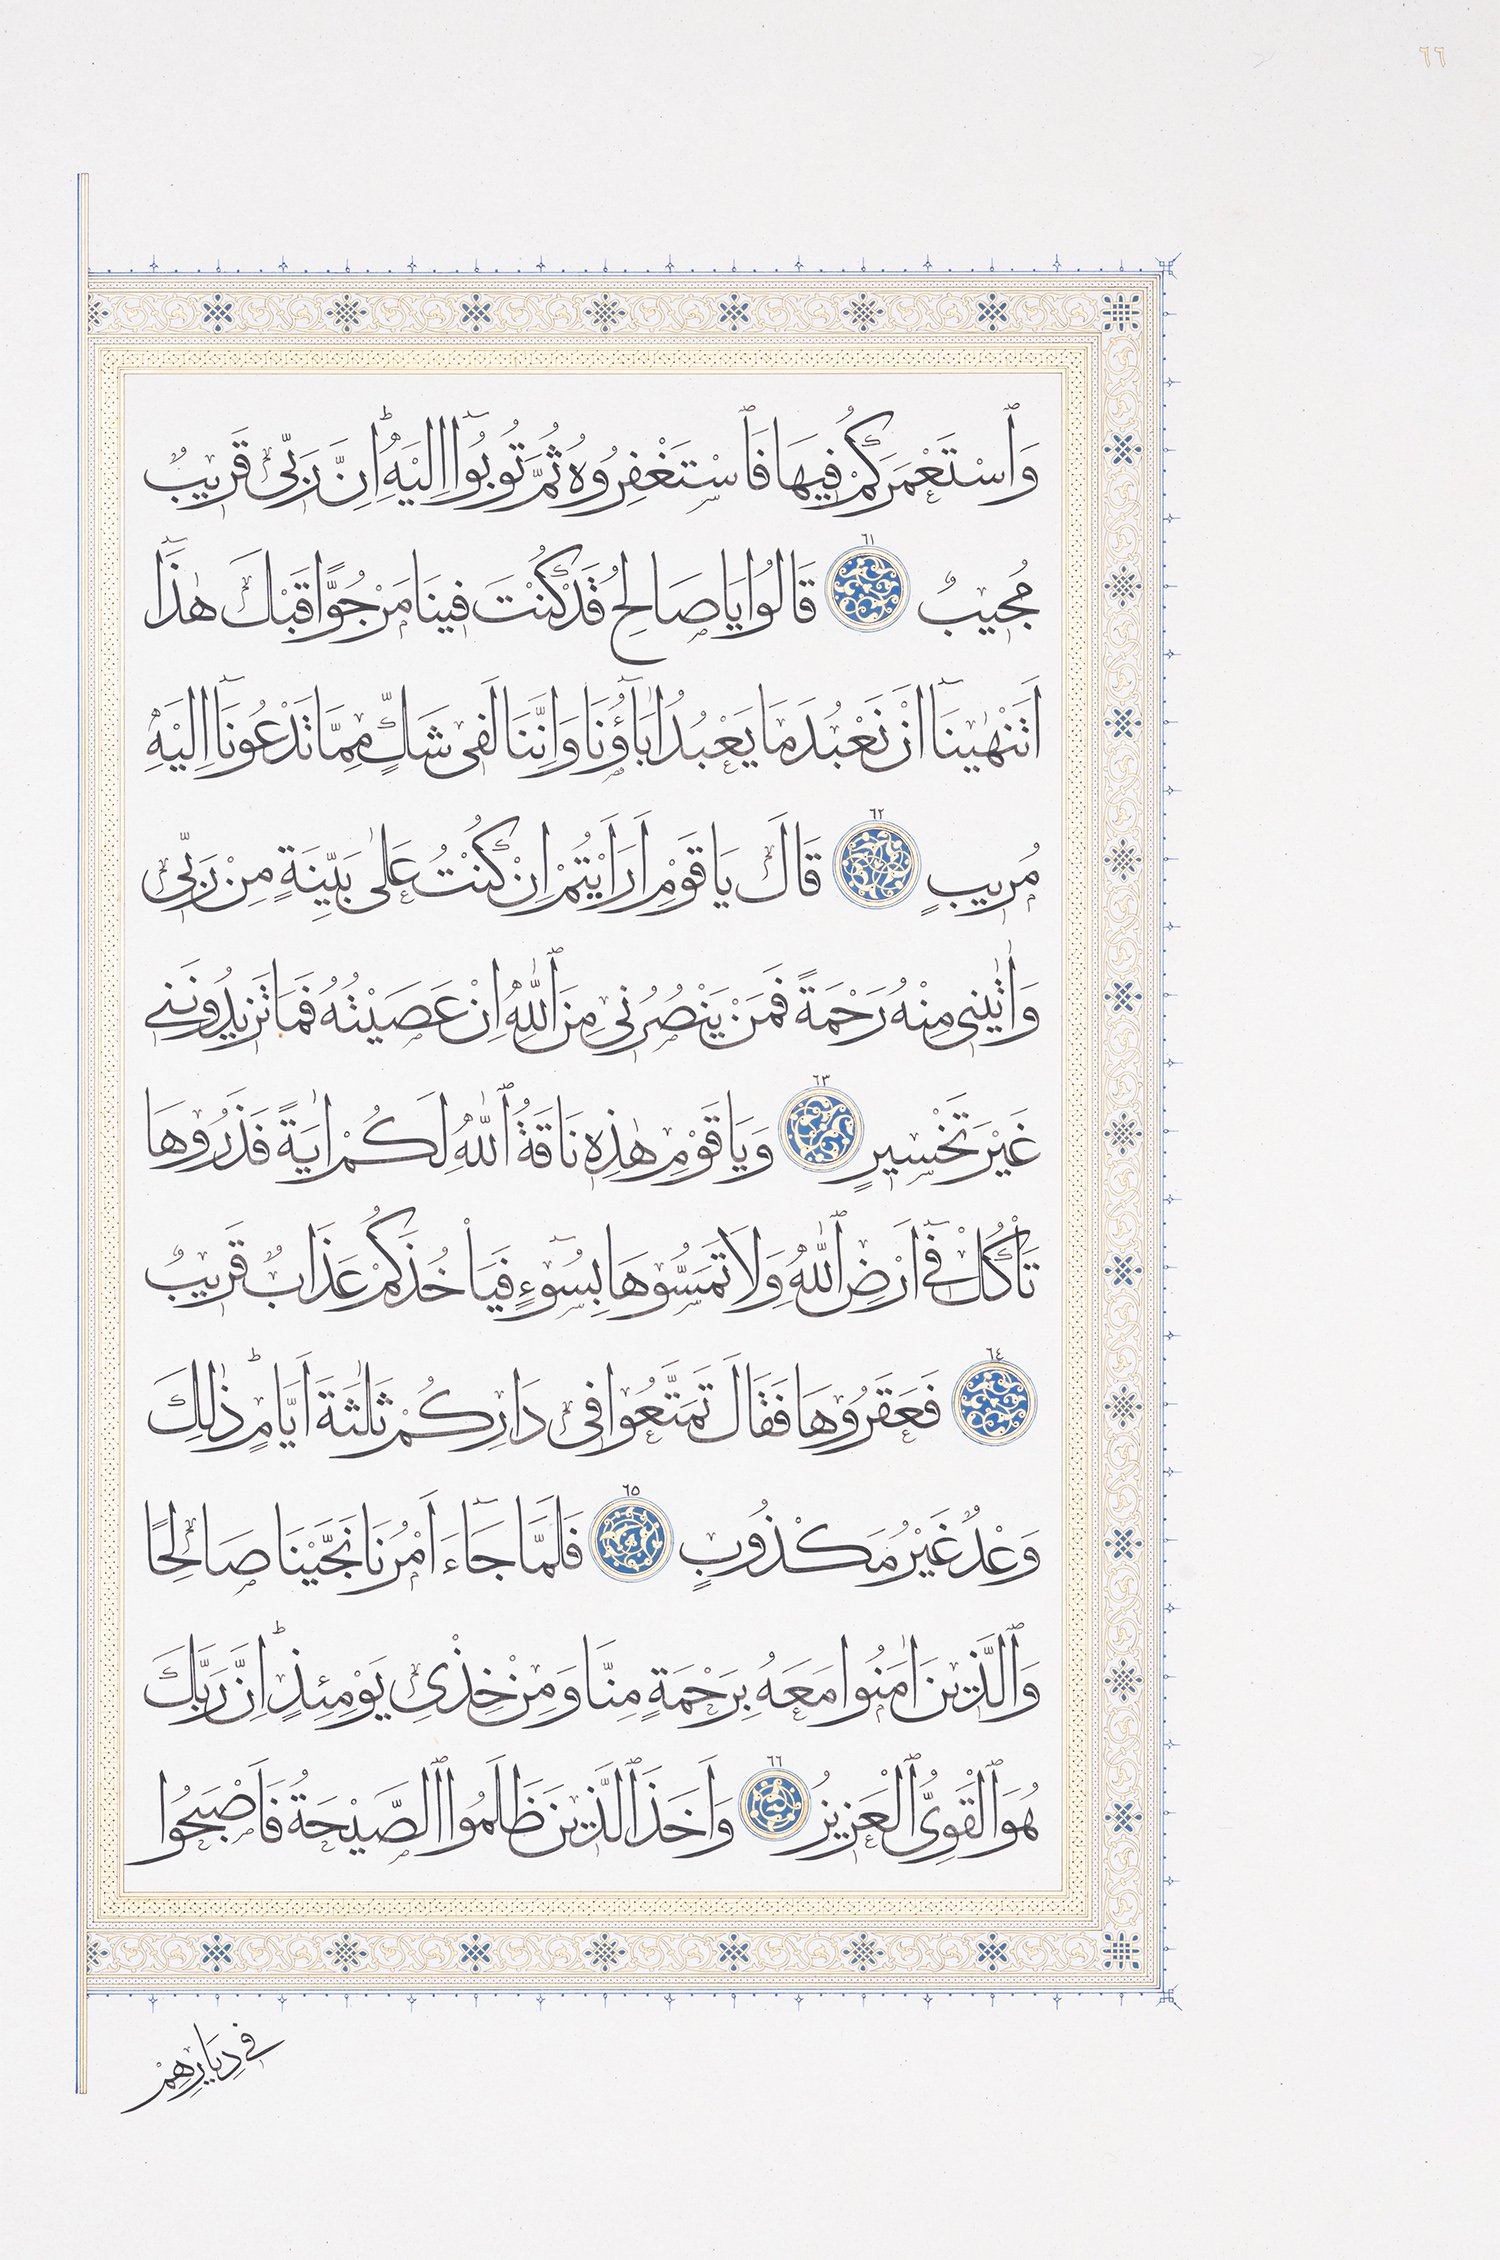 ٦٦
وَٱسْتَعْمَرَكُمْ فِيهَا فَٱسْتَغْفِرُوهُ ثُمَّ تُوبُوٓا اِلَيْهِؕ اِنَّ رَبّ۪ى قَر۪يبٌ
مُج۪يبٌ ٦١ قَالُوا يَا صَالِحُ قَدْ كُنْتَ ف۪ينَا مَرْجُوًّا قَبْلَ هٰذَٓا
اَتَنْهٰينَٓا اَنْ نَعْبُدَ مَا يَعْبُدُ اٰبَٓاؤُ۬نَا وَاِنَّنَا لَف۪ى شَكٍّ مِمَّا تَدْعُونَٓا اِلَيْهِ
مُر۪يبٍ ٦٢ قَالَ يَا قَوْمِ اَرَاَيْتُمْ اِنْ كُنْتُ عَلٰى بَيِّنَةٍ مِنْ رَبّ۪ى
وَاٰتٰين۪ى مِنْهُ رَحْمَةً فَمَنْ يَنْصُرُن۪ى مِنَ ٱللّٰهِ اِنْ عَصَيْتُهُ فَمَا تَز۪يدُونَن۪ى
غَيْرَ تَخْس۪يرٍ ٦٣ وَيَا قَوْمِ هٰذِه۪ نَاقَةُ ٱللّٰهِ لَكُمْ اٰيَةً فَذَرُوهَا
تَأْكُلْ ف۪ٓى اَرْضِ ٱللّٰهِ وَلَا تَمَسُّوهَا بِسُٓوءٍ فَيَأْخُذَكُمْ عَذَابٌ قَر۪يبٌ
٦٤ فَعَقَرُوهَا فَقَالَ تَمَتَّعُوا ف۪ى دَارِكُمْ ثَلٰثَةَ اَيَّامٍؕ ذٰلِكَ
وَعْدٌ غَيْرُ مَكْذُوبٍ ٦٥ فَلَمَّا جَٓاءَ اَمْرُنَا نَجَّيْنَا صَالِحًا
وَٱلَّذ۪ينَ اٰمَنُوا مَعَهُ بِرَحْمَةٍ مِنَّا وَمِنْ خِزْىِ يَوْمِئِذٍؕ اِنَّ رَبَّكَ
هُوَ ٱلْقَوِىُّ ٱلْعَز۪يزُ ٦٦ وَاَخَذَ ٱلَّذ۪ينَ ظَلَمُوا ٱلصَّيْحَةُ فَاَصْبَحُوا
ف۪ى دِيَارِهِمْ